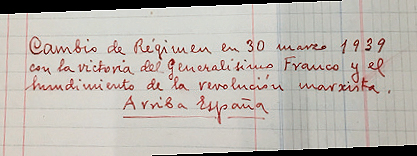 Cambio de Régimen en 30 marzo 1939
con la victoria del Generalisimo Franco y el
hundimiento de la revolución marxista.
Arriba España